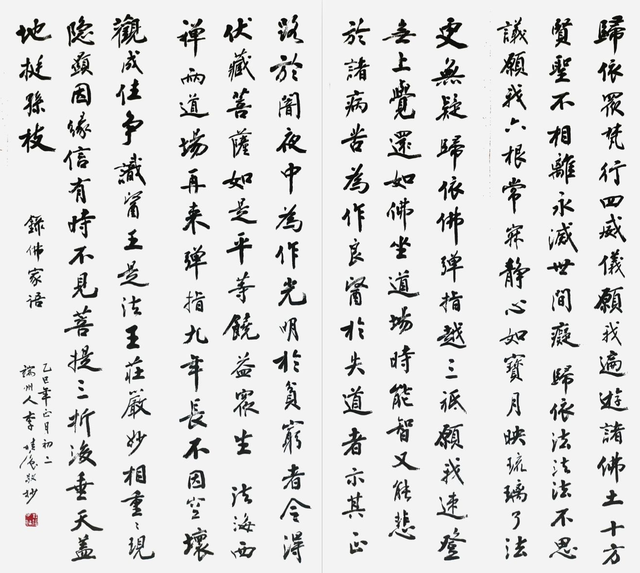 歸依眾梵行四威儀願我遍遊諸佛土十方
賢聖不相離永滅世間癡 歸依法法法不思
議願我六根常寂靜心如寶月映琉璃了法
更無疑歸依佛彈指越三祇願我速登
無上覺還如佛坐道場時能智又能悲
於諸病苦為作良醫於失道者示其正
路於闇夜中為作光明於貧窮者令得
伏藏菩薩如是平等饒益眾生 法海西
禪兩道場再来彈指九年長不因空壞
觀成住争識醫王是法王莊嚴妙相重〻現
隐顯因緣信有時不見菩提三折後垂天蓋
地挺孫枝
錄佛家语
乙巳年正月初二
州人李 敬抄